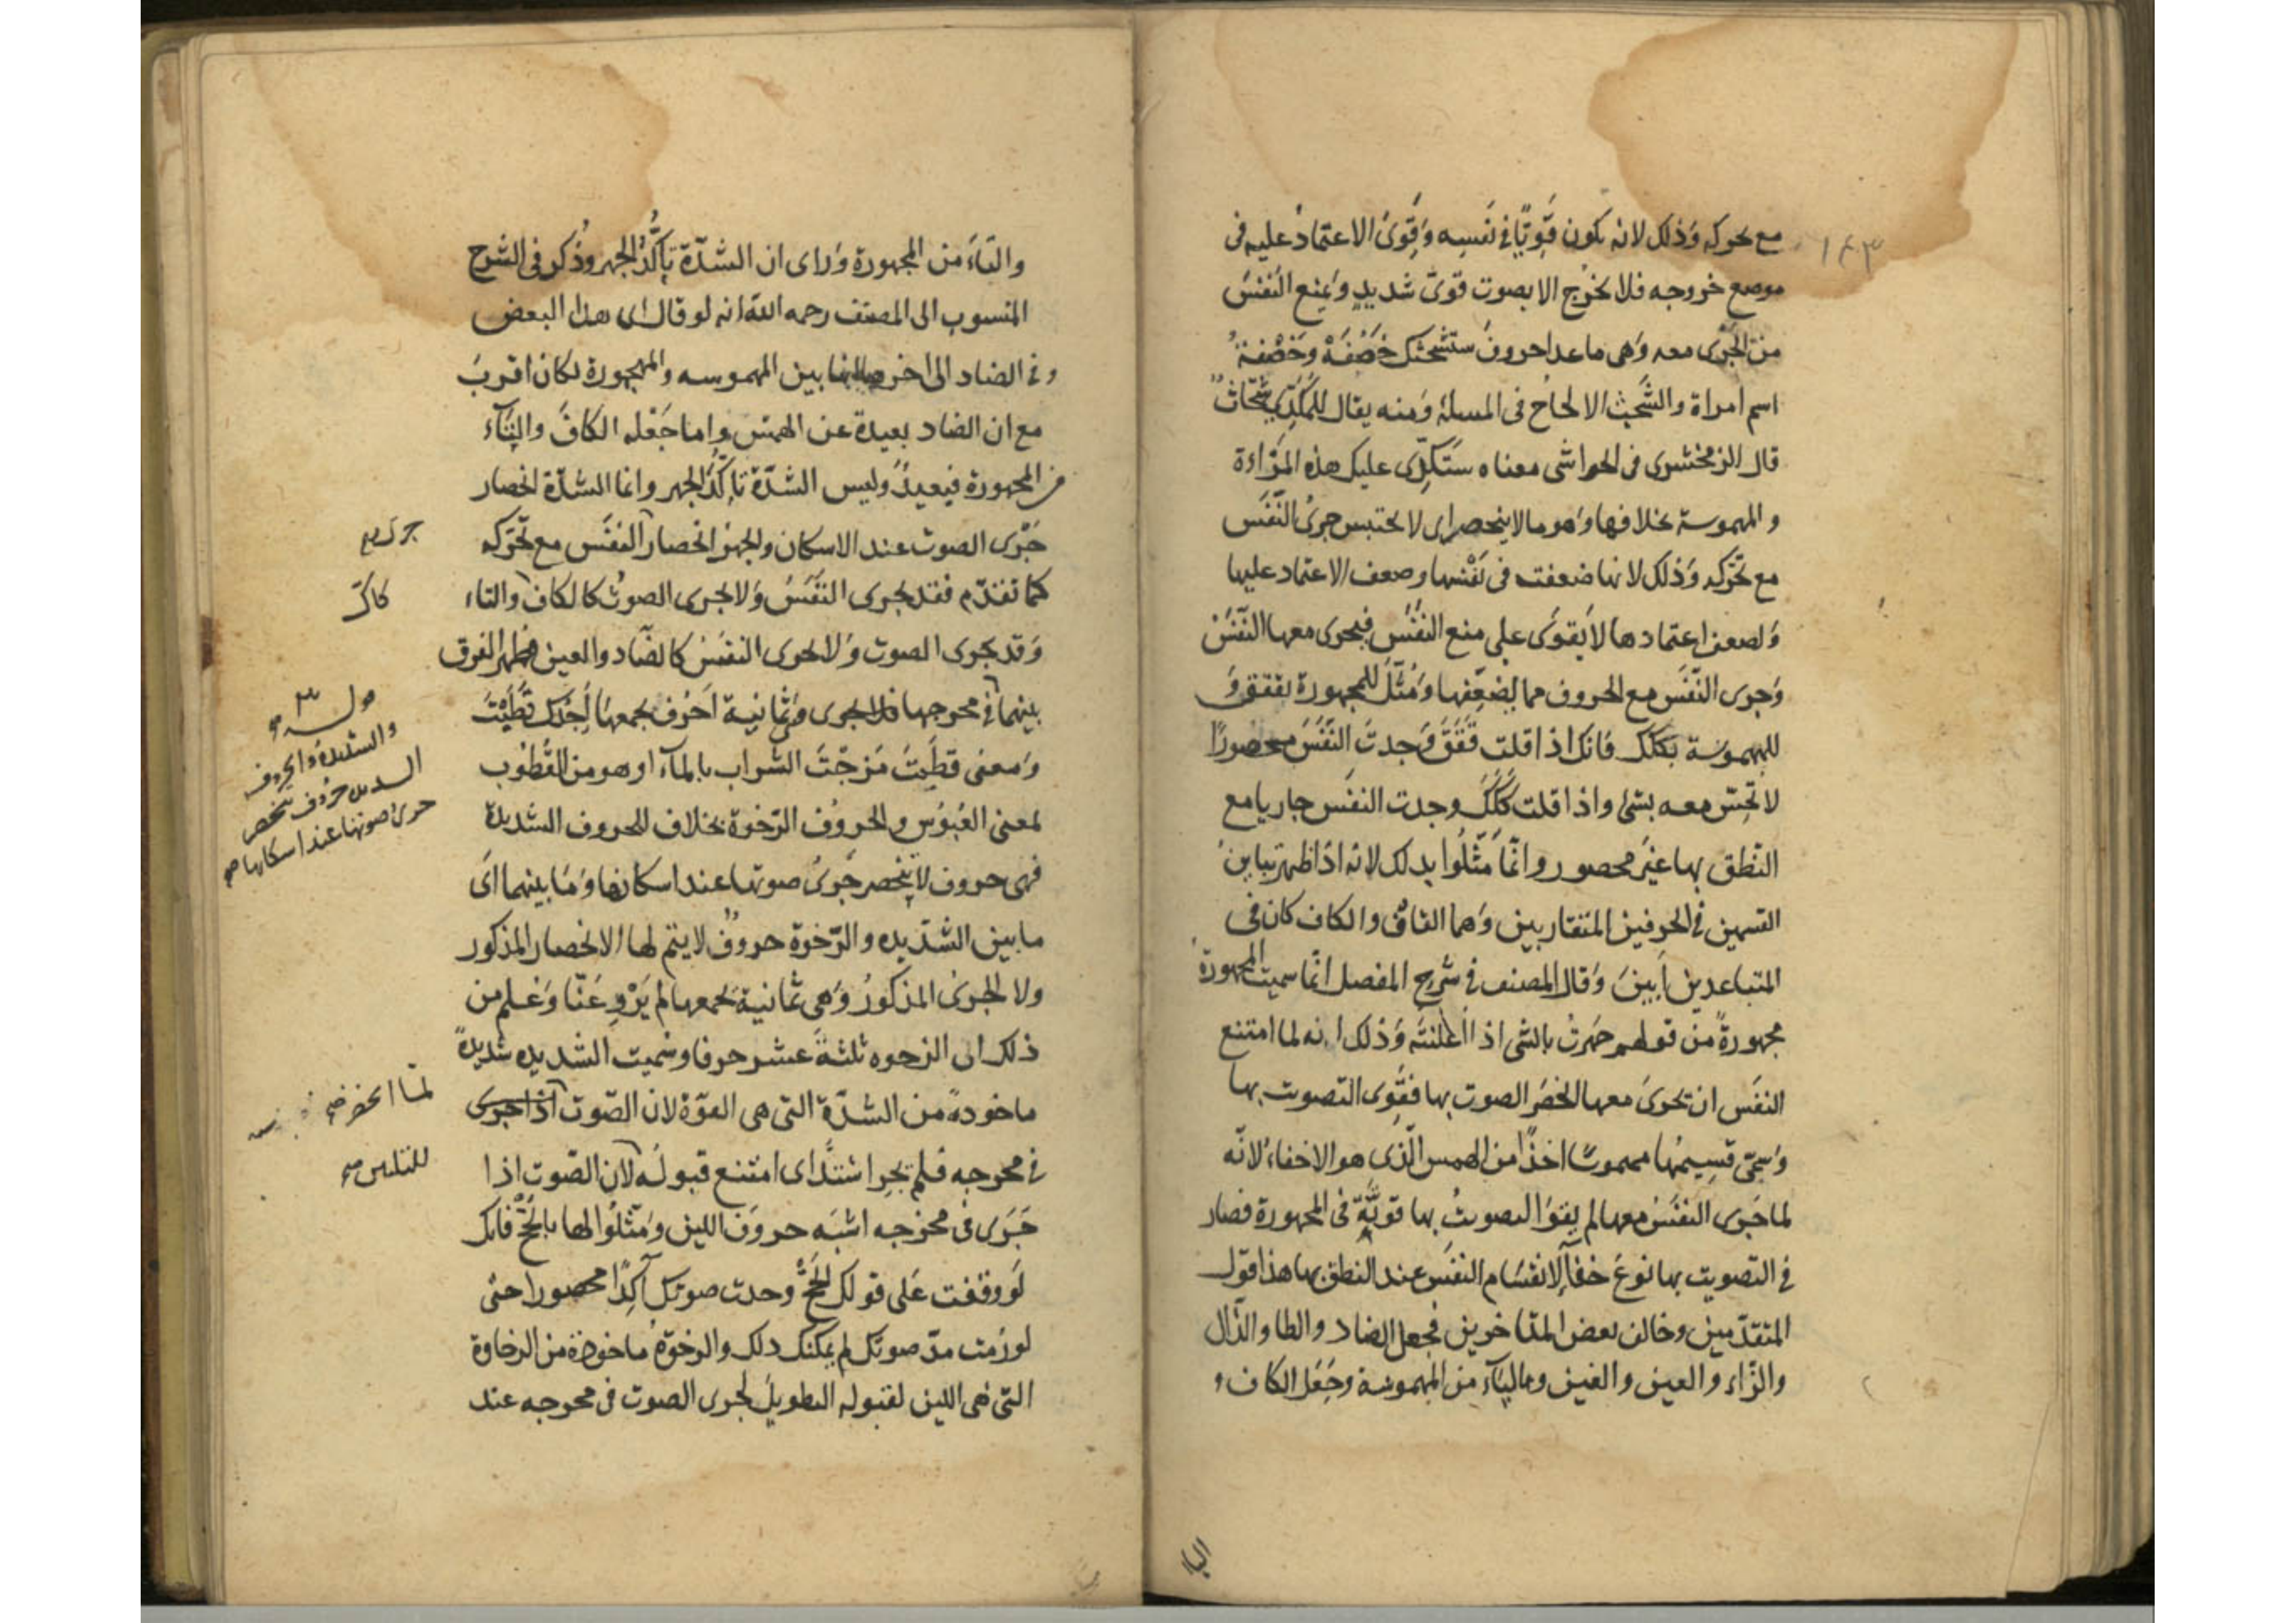 ١٤٣
مع تحركه وَذلك لانه يكون قَوِيًّا فى نَفْسِه وَقَوِىَ الاعتمادُ عليه فى
موضع خروجه فلا يخرُج الا بصوت قوىّ شديدٍ وَيمنع النَفَسَ
من الجَرْى معه وَهى ماعدا حروفَ ستشحثك خَصَفَهْ وخَصَفة
اسم امراة والشَّحْث الالحاح فى المسئلة وَمنه يقال للمُكَدِّى شحّاث
قال الزمخشرى فى الحواشى معناه ستُكَدِّى عليك هذه المرْاءة
والمهموسة بخلافها وَهو مالا ينحصر اى لا يحتبس جرىُ النَّفَس
مع تحَرّكِه وَذلك لانها ضعفت فى نَفْسها وضعف الاعتماد عليها
وَلضعف اعتمادها لا يَقوَى على منع النفَسَ فيجرى معها النَّفَسُ
وَجرى النَّفَس مع الحروف مما يُضعِّفها وَمُثِّلَ للمجهورة بققق وَ
للمهموسة بككك فانك اذا قلت قَقَقَ وَجدتَ النَّفَسَ محصورًا
لا تُحِسّ معه بشئ واذا قلت كَكَكَ وجدت النفَس جاريا مع
النّطق بها غيرَ محصور وانّما مَثَّلُوا بذلك لانه اذا ظهر تبايُن
القسمين فى الحرفين المتقاربين وَهما القاف والكاف كان فى
المتباعدين اَبينَ وَقال المصنف فى شرح المفصل انّما سميت المجهورة
مجهورةً من قولهم جَهرتُ بالشى اذا اَعْلنتَه وَذلك انه لما امتنع
النفَس ان يجرىَ معها انحصَر الصوت بها فقَوِىَ التصويت بها
وَسمّى قسِيمُها مهموسًا اخذًا من الهمس الّذى هو الاخفاءُ لانّه
لما جَرى النفَسُ معها لم يقوَ التصويتُ بها قوّتَه فى المجهورة فصار
فى التصويت بها نوعَ خفآءٍ لانقسام النفَس عند النطق بها هذا قول
المتقدّمين وخالف بعض المتاخرين فجعل الضاد والظا والذال
والزاء والعين والغين والياء من المهموسة وجَعَل الكاف و
الياء
والتّاءَ من المجهورة وَراى ان الشدّة تاكُّدُ الجهر وذُكر فى الشرح
المنسوب الى المصنف رحمه اللّه انه لو قال اى هذا البعض
فى الضاد الى اخرها انها بين المهموسه والمجهورة لكان اقربَ
مع ان الضاد بعيدة عن الهمس واما جَعْله الكافَ والتّآءَ
من المجهورة فبعيدٌ وليس الشدّة تاكُّدَ الجهر وانما الشدّة انحصار
جَرْى الصوت عند الاسكان والجهر انحصار النفَس مع تحَرّكه
كما تقدّم فقد يجرى النَّفَسُ وَلا يجرى الصوتُ كالكاف والتاء
وَقد يجرى الصوت وَلا يجرى النفَسُ كالضّاد والعين فظهر الفرق
بينهما فى مخرجها فلا يجرى وَثمانية اَحرُف يجمعها اَجدُك قَطَبْتَ
وَمعنى قطَبتَ مَزجْتَ الشراب بالمآء او هو من القُطُوب
بمعنى العُبُوس والحروُف الرّخوة بخلاف الحروف الشديدة
فهى حروف لا يَنْحصر جَرىُ صوتها عند اسكانها وَمَا بينهما اى
مابين الشدّيده والرّخوة حروُف لا يتم لها الانحصار المذكور
ولا الجَرىُ المذكورُ وَهى ثمانية يجمعها لم يَرْوِ عَنّا وَعُلم من
ذلك ان الرخوه ثلثةَ عشر حرفا وسُميت الشديده شديدةً
ماخوذةً من الشدّة التى هى القوّة لان الصّوت اذا جرى
فى مخرجه فلم يجرِ اشتدَّ اى امتنع قبولُه لان الصّوت اذا
جَرَى فى مخرجه اشبَه حروفَ اللين ومَثّلُوا لها بالحَجّ فانك
لَو وقفت عَلى قولك الحَجّ وجدت صوتك آكِدًا محصورا حتى
لو رُمت مدّ صوتك لم يمكنك ذلك والرخوَة ماخوذة من الرخاوة
التى هى اللين لقبوله التطويلَ لجرى الصوت فى مخرجه عند
جرى
والشديدة والحروف
حروف ينحصر
جرى صوتها عند اسكانها صح
لمّا انحصر